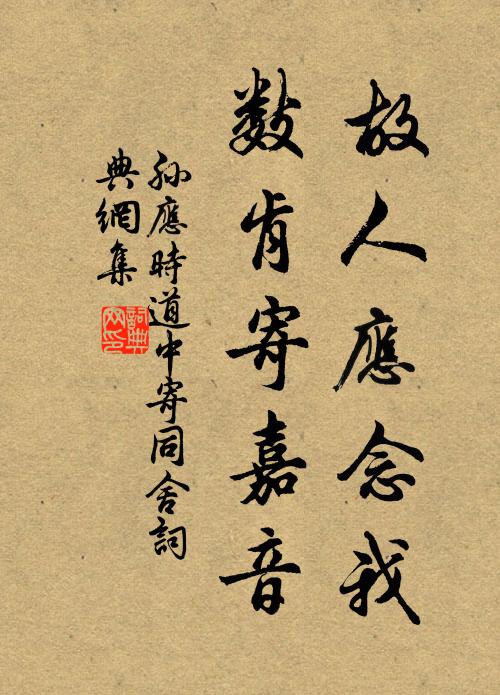 故人應念我
數肯寄嘉音
孫應時道中寄同舍詞
典網集
詞典網印